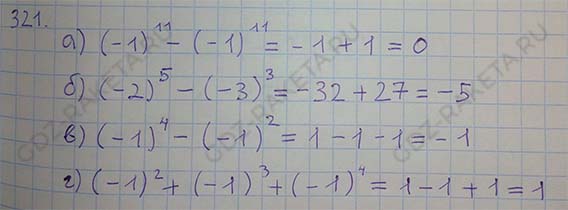 321.
а) (-1)¹¹ - (-1)¹¹ = -1 + 1 = 0
б) (-2)⁵ - (-3)³ = -32 + 27 = -5
в) (-1)⁴ - (-1)² = 1 - 1 - 1 = -1
г) (-1)² + (-1)³ + (-1)⁴ = 1 - 1 + 1 = 1
GDZ-RAKETA.RU